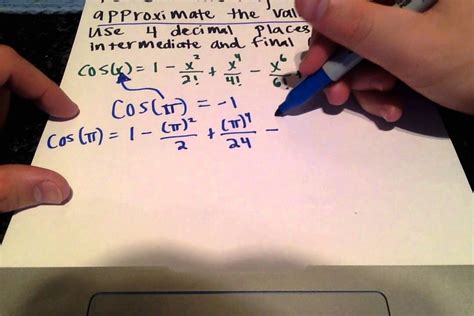 approximate the
Use 4 decimal places
intermediate and final
cos(x) = 1 - x²/2! + x⁴/4! - x⁶/6!
cos(π) = -1
cos(π) = 1 - (π)²/2 + (π)⁴/24 -